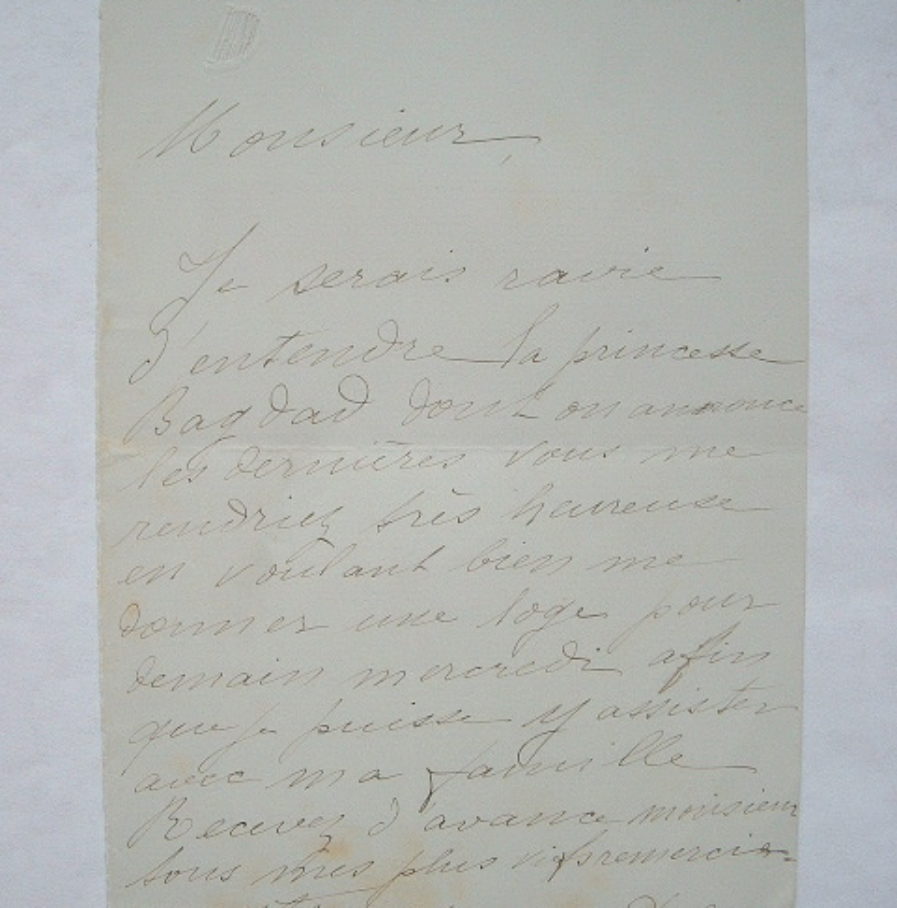 Monsieur,
Je serais ravie
d'entendre la princesse
Bagdad dont on annonce
les dernières vous me
rendriez très heureuse
en voulant bien me
donner une loge pour
demain mercredi afin
que je puisse y assister
avec ma famille
Recevez d'avance monsieur
tous mes plus vifs remercie-